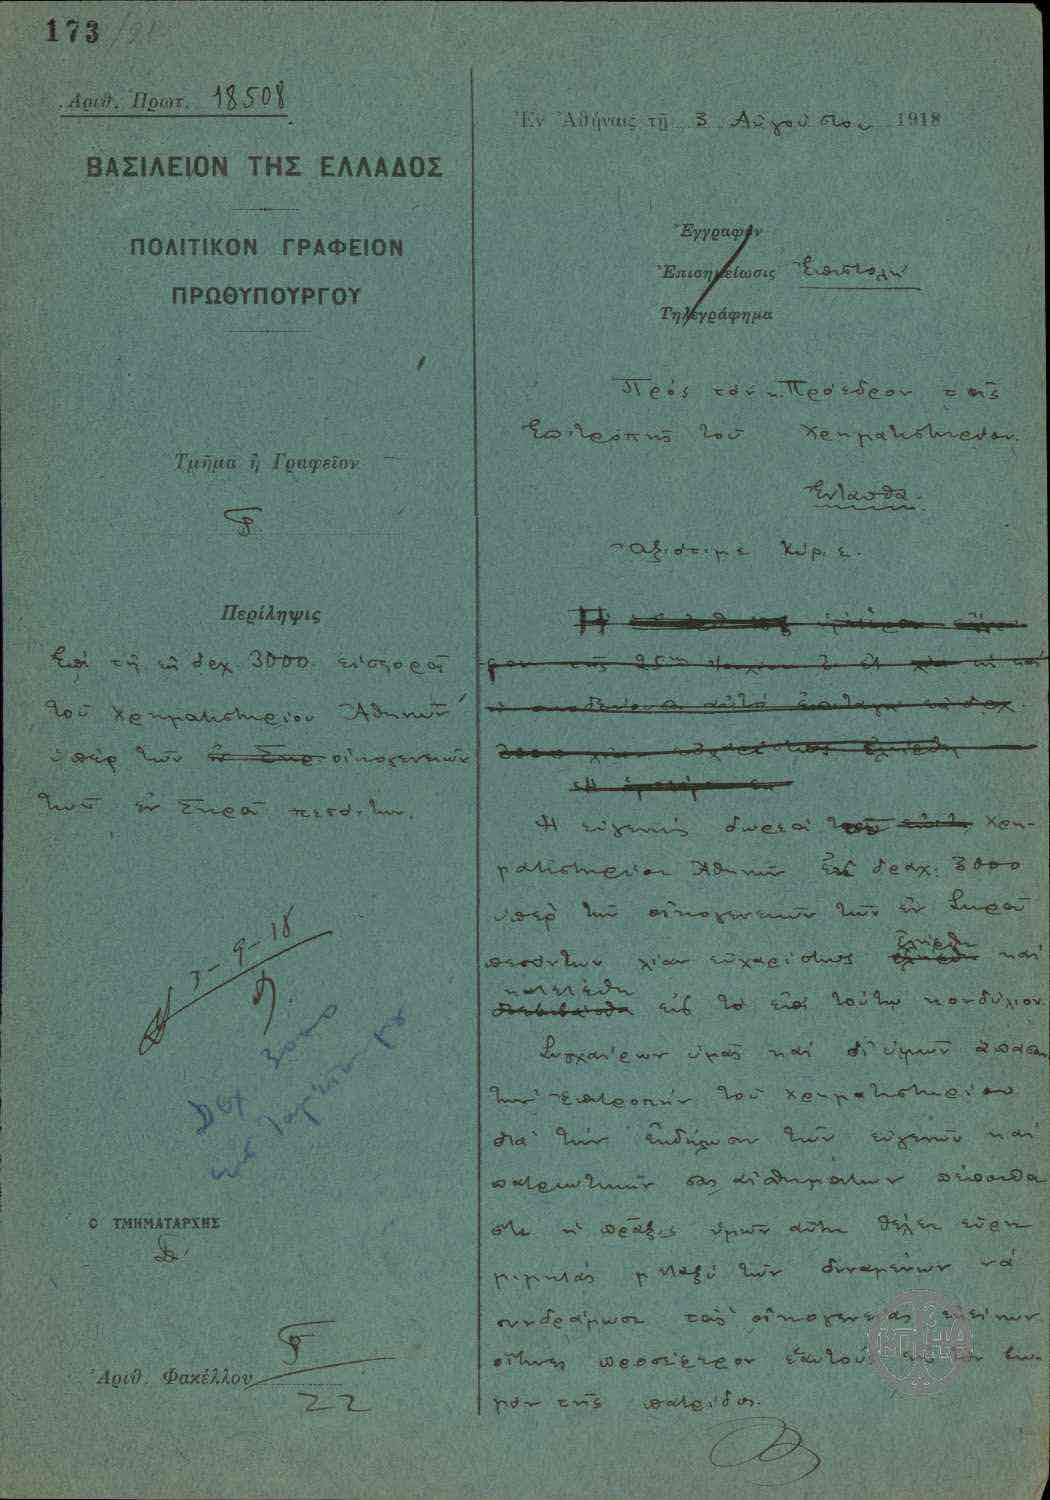 173
Ἀριθ. Πρωτ. 18508
ΒΑΣΙΛΕΙΟΝ ΤΗΣ ΕΛΛΑΔΟΣ
ΠΟΛΙΤΙΚΟΝ ΓΡΑΦΕΙΟΝ
ΠΡΩΘΥΠΟΥΡΓΟΥ
Τμῆμα ἢ Γραφεῖον
Περίληψις
Ἐπὶ τῇ ἐκ δρχ. 3000 εἰσφορᾷ
τοῦ Χρηματιστηρίου Ἀθηνῶν
ὑπὲρ τῶν οἰκογενειῶν
τῶν ἐν Σκρᾶ πεσόντων.
3-9-18
Δρχ 3000
Ο ΤΜΗΜΑΤΑΡΧΗΣ
Ἀριθ. Φακέλλου
22
Ἐν Ἀθήναις τῇ 3 Αὐγούστου 1918
Ἔγγραφον
Ἐπισημείωσις Ἐπιστολή
Τηλεγράφημα
Πρὸς τὸν κ. Πρόεδρον τῆς
Ἐπιτροπῆς τοῦ Χρηματιστηρίου
Ἐνταῦθα.
Ἀξιότιμε Κύριε.
Ἡ
Ἡ εὐγενὴς δωρεὰ τοῦ Χρη-
ματιστηρίου Ἀθηνῶν ἐκ δραχ. 3000
ὑπὲρ τῶν οἰκογενειῶν τῶν ἐν Σκρᾶ
πεσόντων λίαν εὐχαρίστως ἐλήφθη καὶ
κατετέθη εἰς τὸ ἐπὶ τούτῳ κονδύλιον
Συγχαίρων ὑμᾶς καὶ δι' ὑμῶν ἅπασαν
τὴν Ἐπιτροπὴν τοῦ Χρηματιστηρίου
διὰ τὴν ἐκδήλωσιν τῶν εὐγενῶν καὶ
πατριωτικῶν σας αἰσθημάτων πέποιθα
ὅτι ἡ πρᾶξις ὑμῶν αὕτη θέλει εὕρῃ
μιμητὰς μεταξὺ τῶν δυναμένων νὰ
συνδράμωσι τὰς οἰκογενείας ἐκείνων
οἵτινες προσέφερον ἑαυτοὺς βω-
μὸν τῆς πατρίδος.